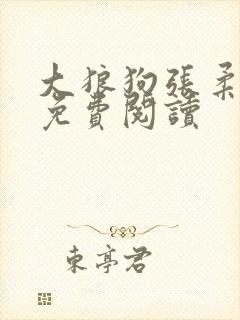 大狼狗张柔
免費閱讀
東亭君